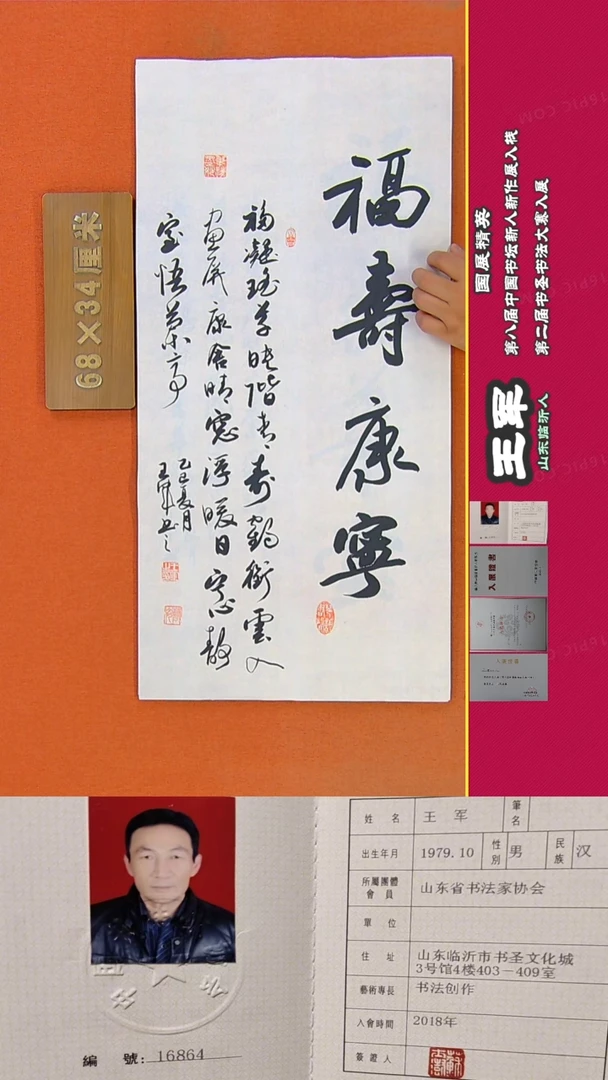 福壽康寧
福凝瑶草映階青壽鶴銜雲入
画屏康舍晴窓浮暖日寧心静
室悟兰亭
乙巳夏月
王军书之
68×34厘米
国展精英
第八届中国书坛新人新作展入栈
第二届书圣书法大赛入展
王军
山东临沂人
入展證書
編 號: 16864
姓 名 王 军 筆名
出生年月 1979.10 性别 男 民族 汉
所屬團體會員 山东省书法家协会
單 位
住 址 山东临沂市书圣文化城
3号馆4楼403-409室
藝術專長 书法创作
入會時間 2018年
簽證人